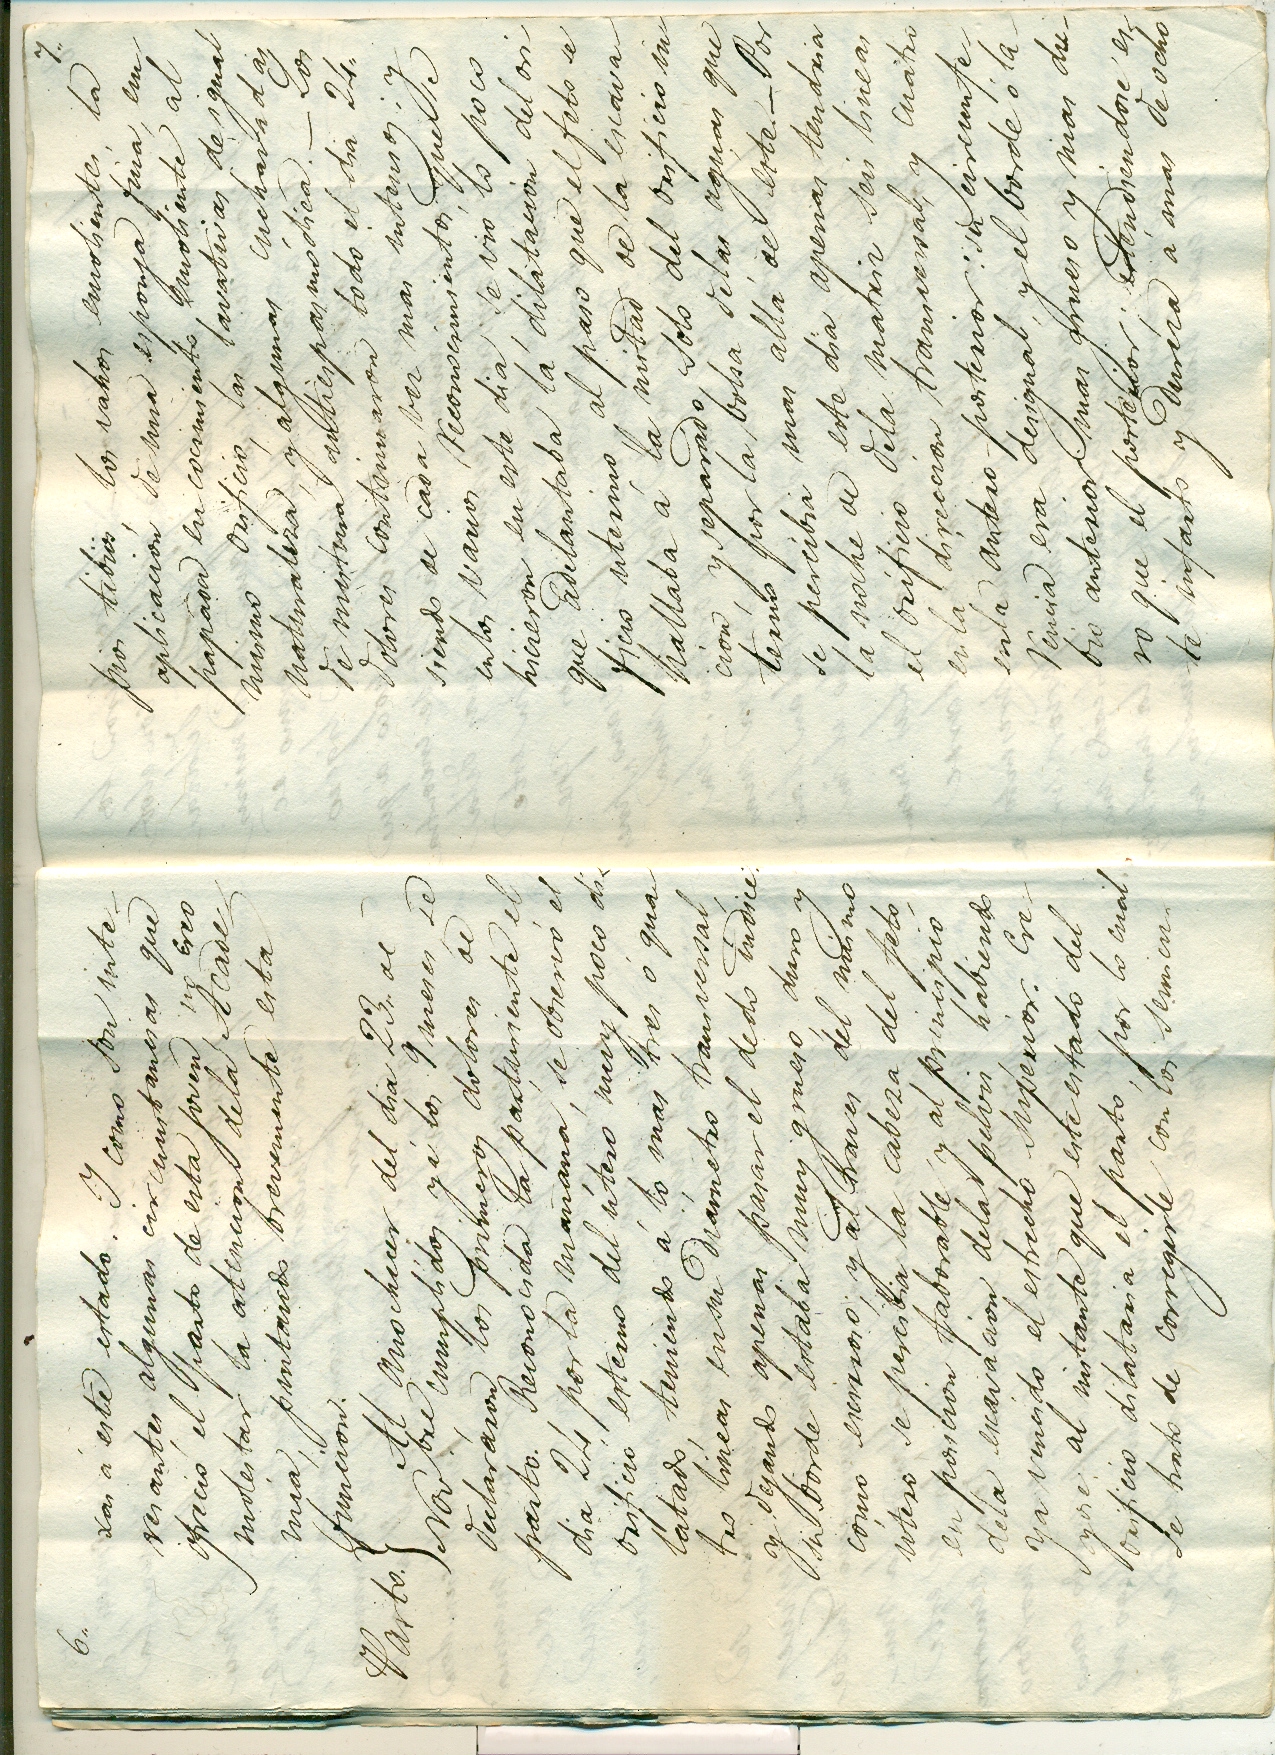 6.
xas á este estado. Y como son inte-
resantes algunas circunstancias que
ofreció el parto de esta joven no creo
molestar la atencion de la Acade-
mia, pintando brevemente esta
funcion.
Parto. Al anochecer del dia 23 de
Nov.bre cumplidos ya los 9 meses se
declararon los primeros dolores de
parto. Reconocida la parturiente el
dia 24 por la mañana, se observó el
orificio esterno del útero muy poco di-
latado teniendo á lo mas tres ó qua-
tro lineas en su diámetro transversal,
y dejando apenas pasar el dedo indice:
su borde estaba muy grueso duro y
como escirroso; y al traves del mismo
utero se percibia la cabeza del feto
en posicion faborable y al principio
de la escavacion de la pelvis habiendo
ya vencido el estrecho superior. Cre-
yose al instante que este estado del
orificio dilataria el parto, por lo cual
se trató de corregirle con los semicu-
7.
pios tibios los vahos emolientes, la
aplicacion de una esponja fina, em
papada en cocimiento emoliente al
mismo orificio, las lavativas de igual
naturaleza, y algunas cucharadas
de mixtura antiespasmodica. — Los
dolores continuaron todo el dia 24,
siendo de cada vez mas intensos; y
en los varios reconocimientos que se
hicieron en este dia se vió lo poco
que adelantaba la dilatacion del ori
ficio uterino al paso que el feto se
hallaba á la mitad de la escava-
cion y separado solo del orificio in
terno por la bolsa de las aguas que
se percibia mas allá de este. — Por
la noche de este dia apenas tendria
el orificio de la matriz seis lineas
en la direccion transversal, y cuatro
en la antero-posterior: su circunfe-
rencia era desigual, y el borde ó la-
bio anterior mas grueso y mas du-
ro que el posterior: estendiendose es-
te infarto y dureza á mas de ocho